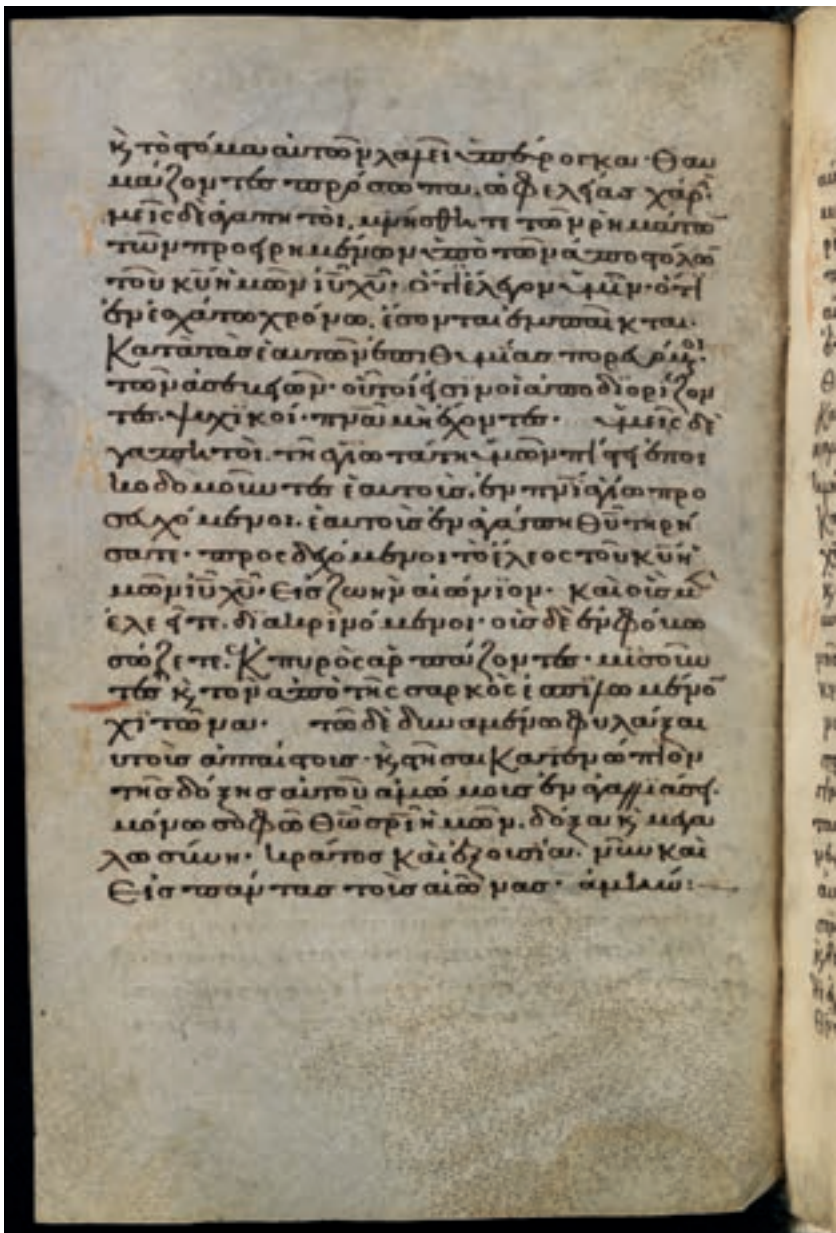 κ, τὸ στόμα αὐτῶν λαλεῖ ὑπέρογκα· θαυ
μάζοντες πρόσωπα, ὠφελείας χάριν·
μεῖς δὲ ἀγαπητοὶ, μνήσθητε τῶν ῥημάτω
τῶν προειρημένων ὑπὸ τῶν ἀποστόλω
τοῦ κυ ἡμῶν ιυ χυ· ὅτι ἔλεγον ὑμῖν· ὅτι
ἐν ἐσχάτω χρόνω, ἔσονται ἐμπαῖκται·
κατὰ τὰς ἑαυτῶν ἐπιθυμίας πορευόμενοι·
τῶν ἀσεβειῶν· οὗτοί εἰσιν οἱ ἀποδιορίζον
τες· ψυχικοί· πνα μὴ ἔχοντες· ὑμεῖς δὲ
γαπητοὶ, τῆ ἁγιωτάτη ὑμῶν πίστει ἐποι
κοδομοῦντες ἑαυτοῖς, ἐν πνι ἁγίω προ
σευχόμενοι, ἑαυτοῖς ἐν ἀγάπη θυ τηρή
σατε· προσδεχόμενοι τὸ ἔλεος τοῦ κυ ἡ
μῶν ιυ χυ· εἰς ζωὴν αἰώνιον· καὶ οἷς μὲν
ἐλεεῖτε, διακρινόμενοι· οἷς δὲ ἐν φόβω
σώζετε, ἐκ πυρὸς ἁρπάζοντες· μισοῦν
τες κ, τὸν ἀπὸ τῆς σαρκὸς ἐσπιλωμένο
χιτῶνα· τῶ δὲ δυναμένω φυλάξαι
υτοῖς ἀπταίστοις· κ, στῆσαι κατενώπιον
τῆς δόξης αὐτοῦ ἀμώμοις ἐν ἀγαλλιάσει·
μόνω σοφῶ θῶ σρι ἡμῶν, δόξα κ, μεγα
λωσύνη· κράτος καὶ ἐξουσία· νῦν καὶ
εἰς πάντας τοῖς αἰῶνας· ἀμήν: